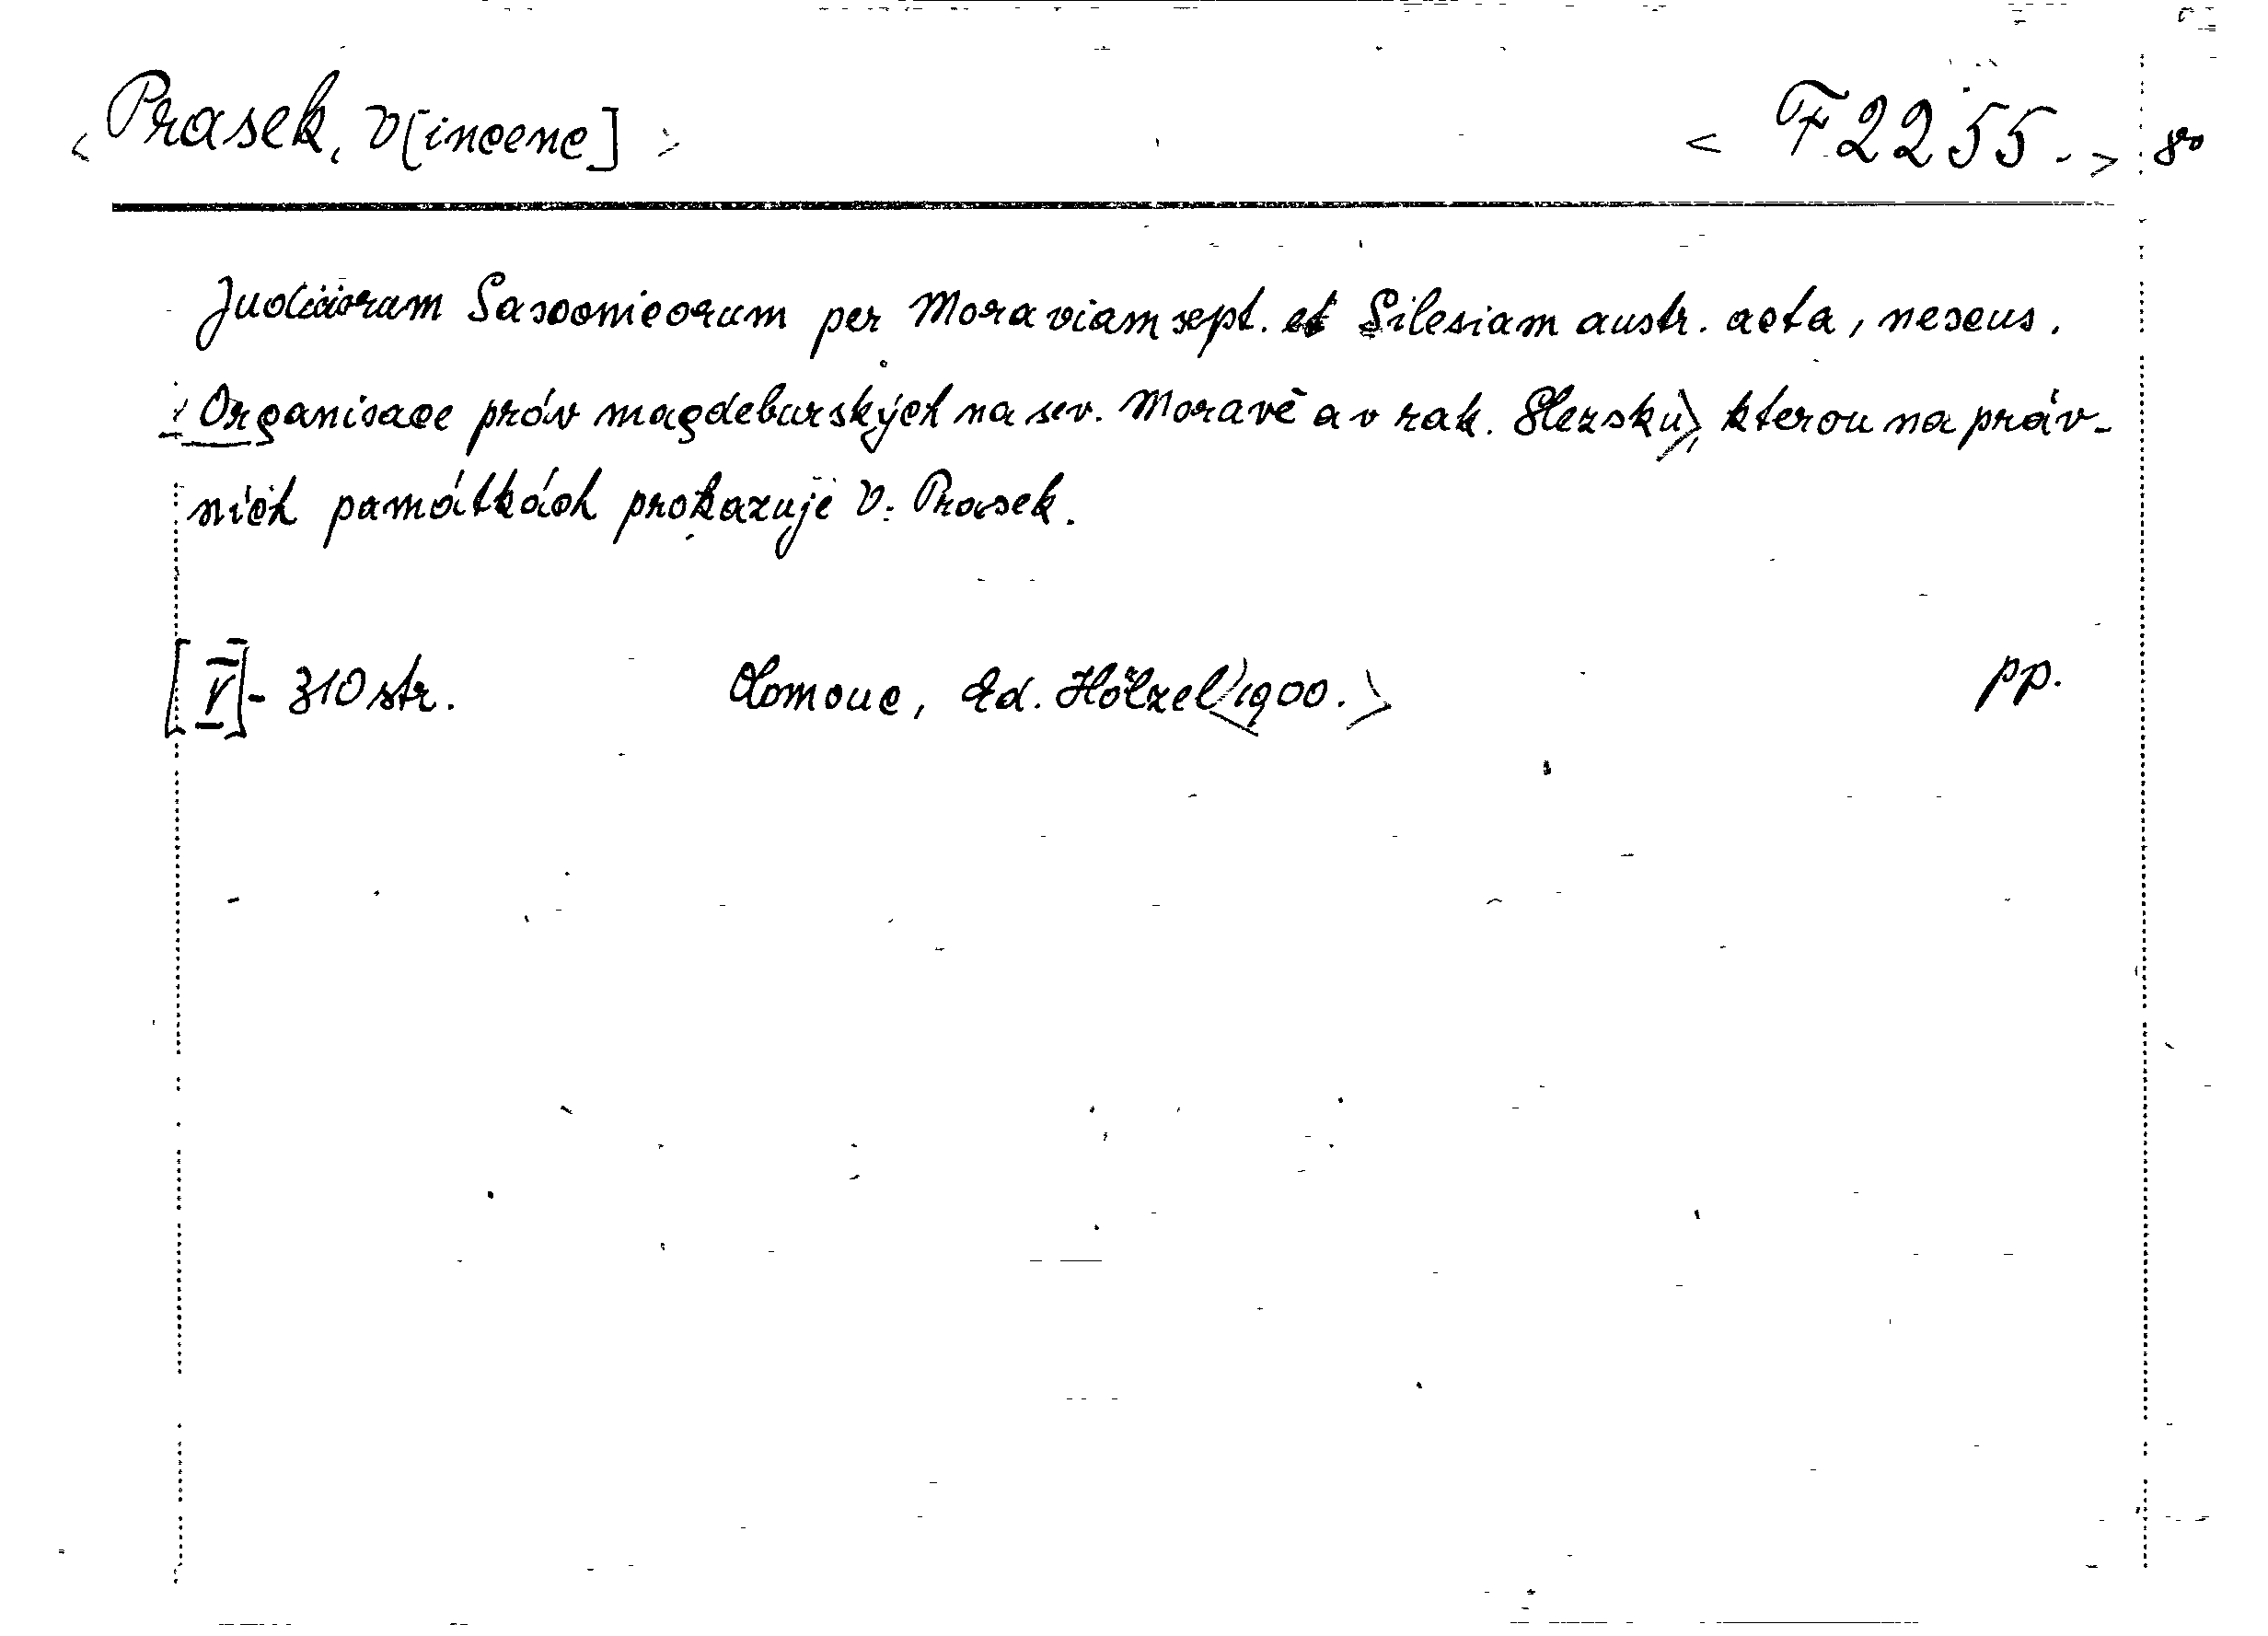 <Prasek, V[incenc]> <F 2255.> 8°
Judiciorum Saxonicorum per Moraviam sept. et Silesiam austr. acta, nexus.
<Organisace práv magdeburských na sev. Moravě a v rak. Slezsku>, kterou na práv-
ních památkách prokazuje V. Prasek.
[V]- 310 str. Olomouc, Ed. Hölzel <1900.> pp.